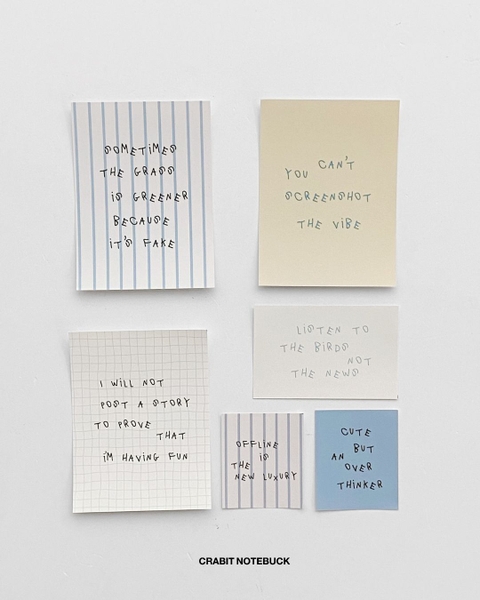 SOMETIMES
THE GRASS
IS GREENER
BECAUSE
IT'S FAKE
YOU CAN'T
SCREENSHOT
THE VIBE
LISTEN TO
THE BIRDS
NOT
THE NEWS
I WILL NOT
POST A STORY
TO PROVE
THAT
I'M HAVING FUN
OFFLINE
IS
THE
NEW LUXURY
CUTE
BUT
AN
OVER
THINKER
CRABIT NOTEBUCK